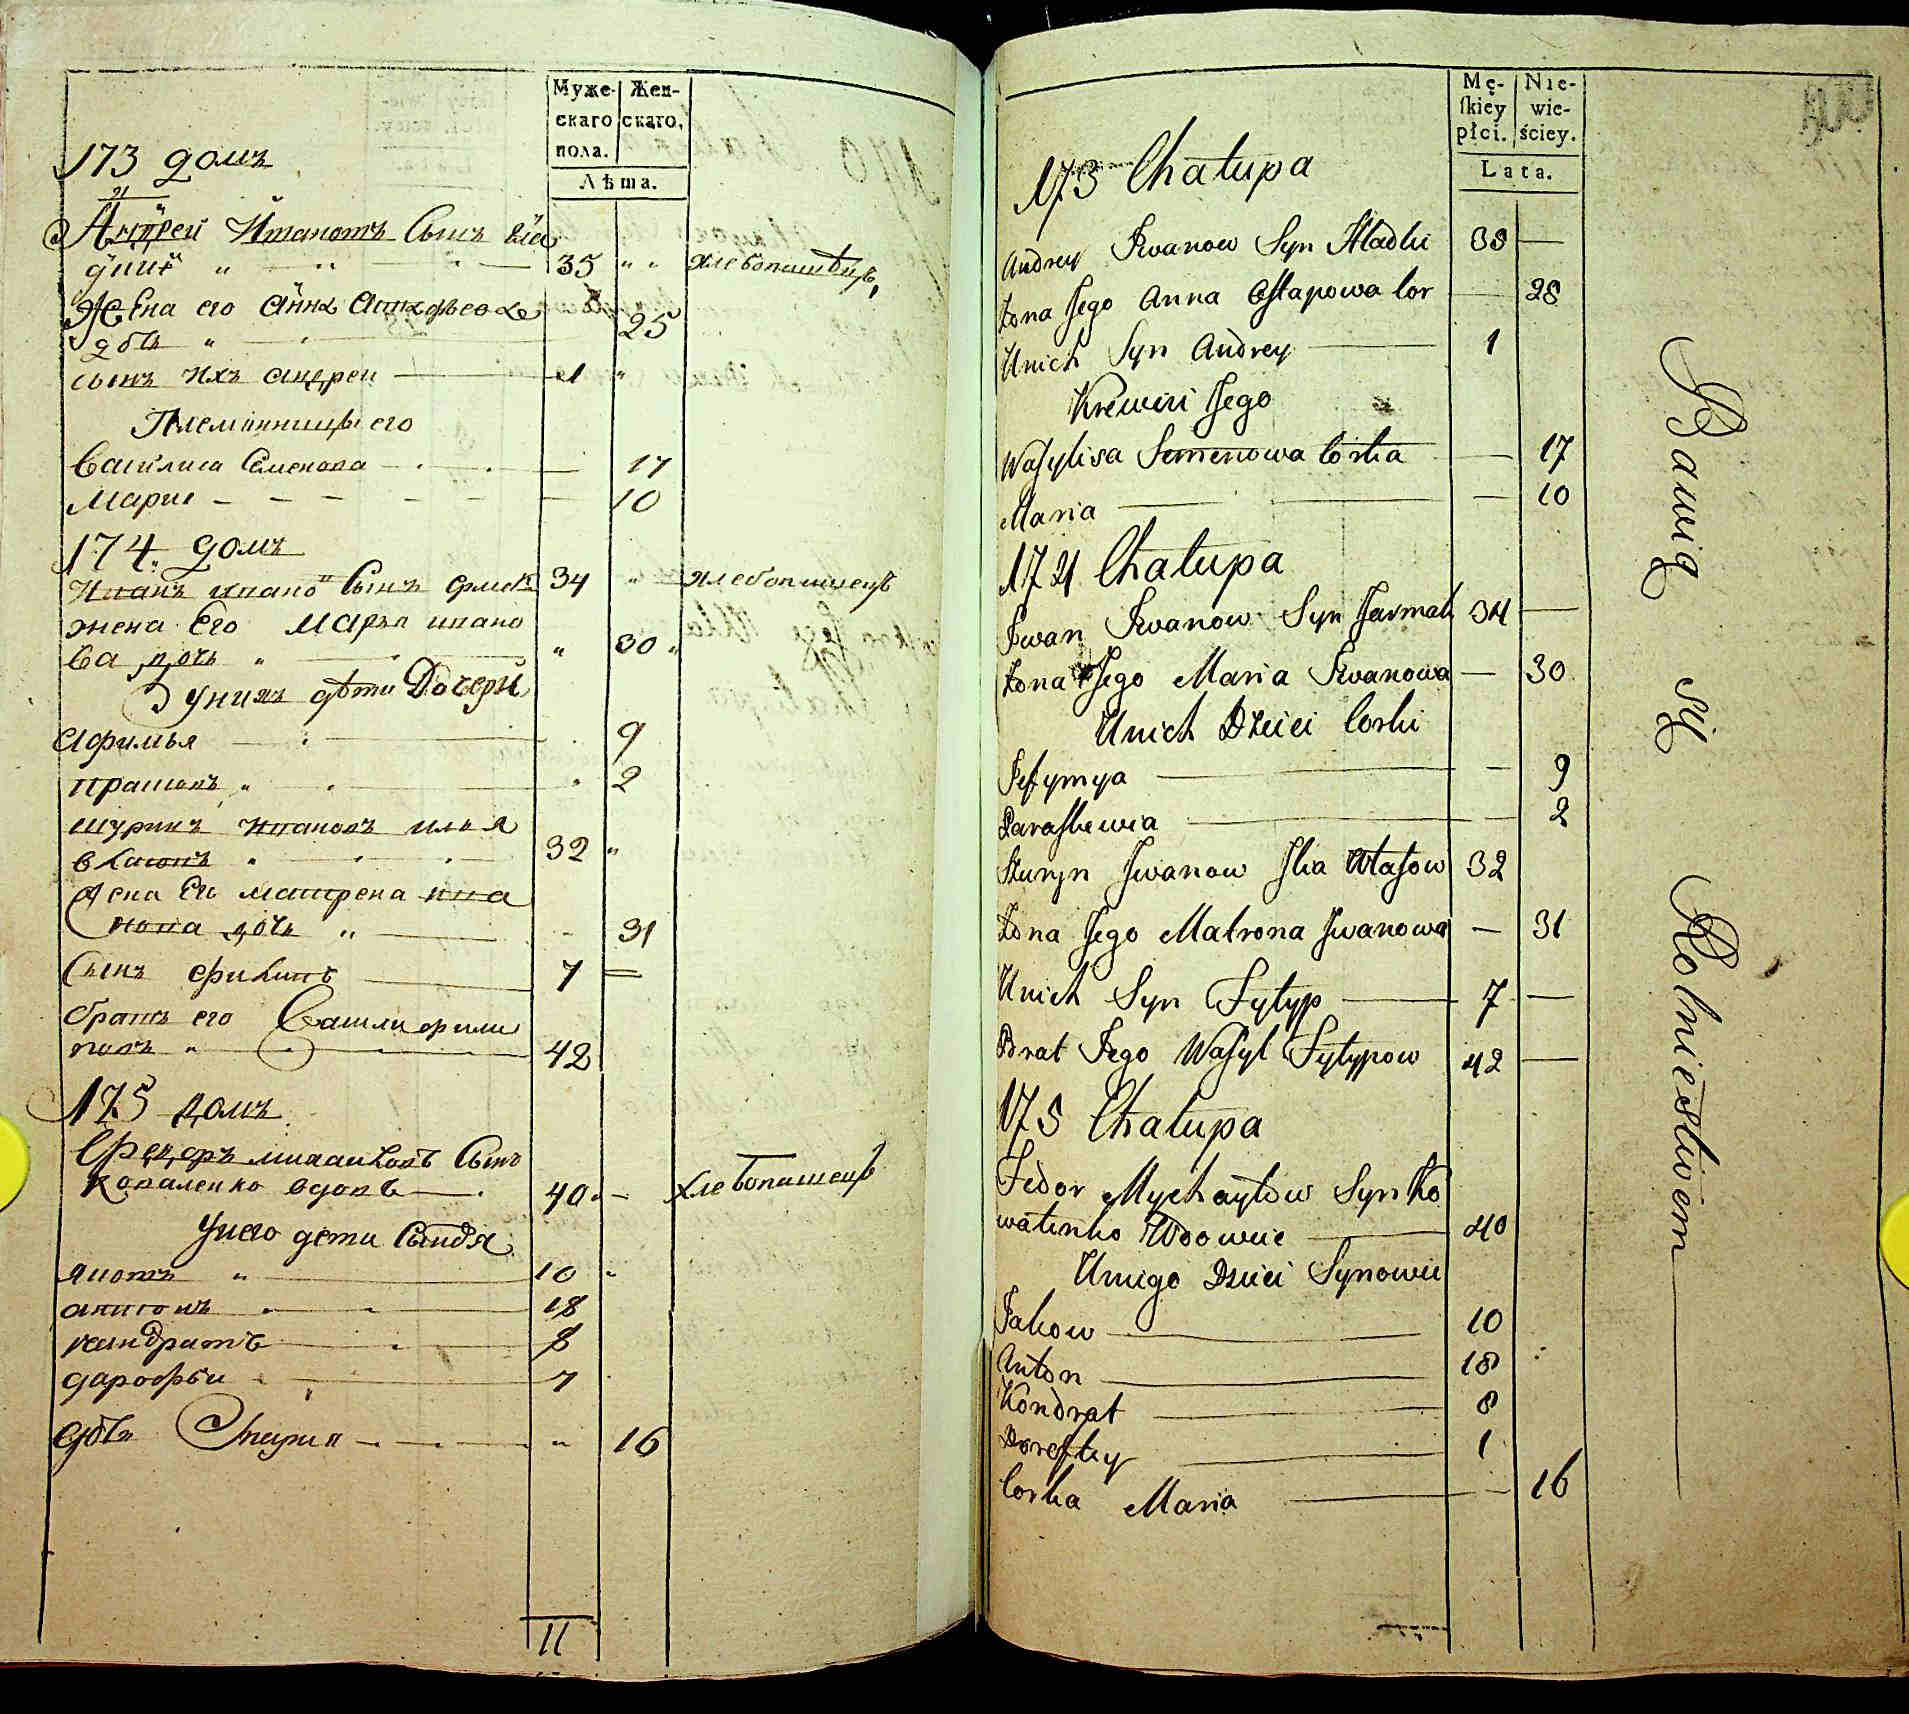 Муже-
скаго
пола.
Жен-
скаго.
Лѣта.
173 домъ
Андреи Ивановъ Сынъ Гла
дкии 35 хлебопашецъ
Жена его Анна Астафьева
дочь 25
сынъ ихъ андреи 1
Племянницы его
Василиса Семенова 17
Марие 10
174 домъ
Иванъ ивано Сынъ 34 хлебопашецъ
жена Его Марья ивано
ва дочь 30
У нихъ дѣти Дочери
Афимья 9
2
шуринъ Ивановъ илья
власовъ 32
жена Ег матрена ива
нова дочь 31
Сынъ филипъ 7
братъ его Васили фили
повъ 42
175 домъ
Федоръ михаиловъ Сынъ
Коваленко вдовъ 40 хлебопашецъ
У него дети Сыновя
яковъ 10
антонъ 18
кандратъ 8
дарофѣи 7
дочь Мария 16
11
Mę-
skiey
płci.
Nie-
wie-
ściey.
Lata.
173 Chałupa
Andrey Iwanow Syn Hładki 38
Żona Jego Anna Ostapowa Cor 28
Unich Syn Andrey 1
Krewni Jego
Wasylisa Semenowa Corka 17
Maria 10
174 Chałupa
Iwan Iwanow Syn Jarmak 34
Żona Jego Maria Iwanowa 30
Unich Dzieci Corki
Jefymya 9
Paraskewia 2
Szuryn Iwanow Ilia Własow 32
Żona Jego Matrona Iwanowa 31
Unich Syn Fylyp 7
Brat Jego Wasyl Fylypow 42
175 Chałupa
Fedor Mychayłow Syn Ko
walenko Wdowiec 40
Uniego Dzieci Synowie
Jakow 10
Anton 18
Kondrat 8
Dorofey 1
Corka Maria 16
Bawią się Rolnictwem